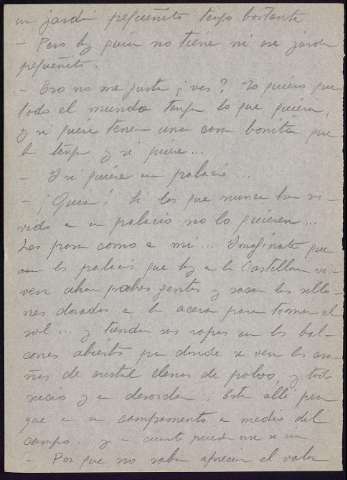 un jardín pequeñito tengo bastante
- Pero hay quien no tiene ni ese jardín
pequeñito.
- Eso no me gusta ¿ves? Yo quiero que
todo el mundo tenga lo que quiera,
y si quiere tener una casa bonita que
la tenga y si quiere...
- Y si quiere un palacio...
- ¡Quiá! Si los que nunca han vi-
vido en un palacio no lo quieren...
Les pasa como a mi... Imagínate que
en los palacios que hay en la Castellana vi-
ven ahora pobres gentes y sacan los sillo-
nes dorados a la acera para tomar el
sol... y tienden sus ropas en los bal-
cones abiertos por donde se ven las ara-
ñas de cristal llenas de polvo, y todo
sucio y en desorden. Está allí peor
que en un campamento en medio del
campo... y en cuanto
- Porque no saben apreciar el valor